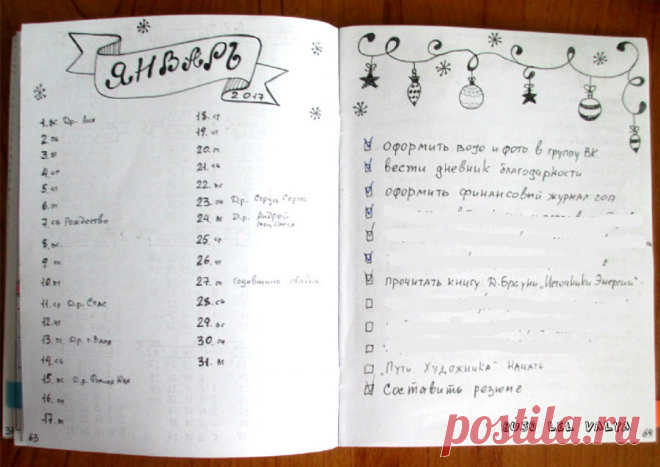 ЯНВАРЬ
2017
1. вс Др. Аня
2. пн
3. вт
4. ср
5. чт
6. пт
7. сб Рождество
8. вс
9. пн
10. вт
11. ср Др. Стас
12. чт
13. пт Др. т. Валя
14. сб
15. вс Др.
16. пн
17. вт
18. ср
19. чт
20. пт
21. сб
22. вс
23. пн Др.
24. вт Др. Андрей
25. ср
26. чт
27. пт годовщина свадьбы
28. сб
29. вс
30. пн
31. вт
63
оформить BUJO и фото в группу ВК
вести дневник благодарности
оформить финансовый журнал 2017
прочитать книгу Д. Брауни „Источники Энергии"
„Путь Художника" начать
Составить резюме
BUJO LIL VALYA
64
postila.ru